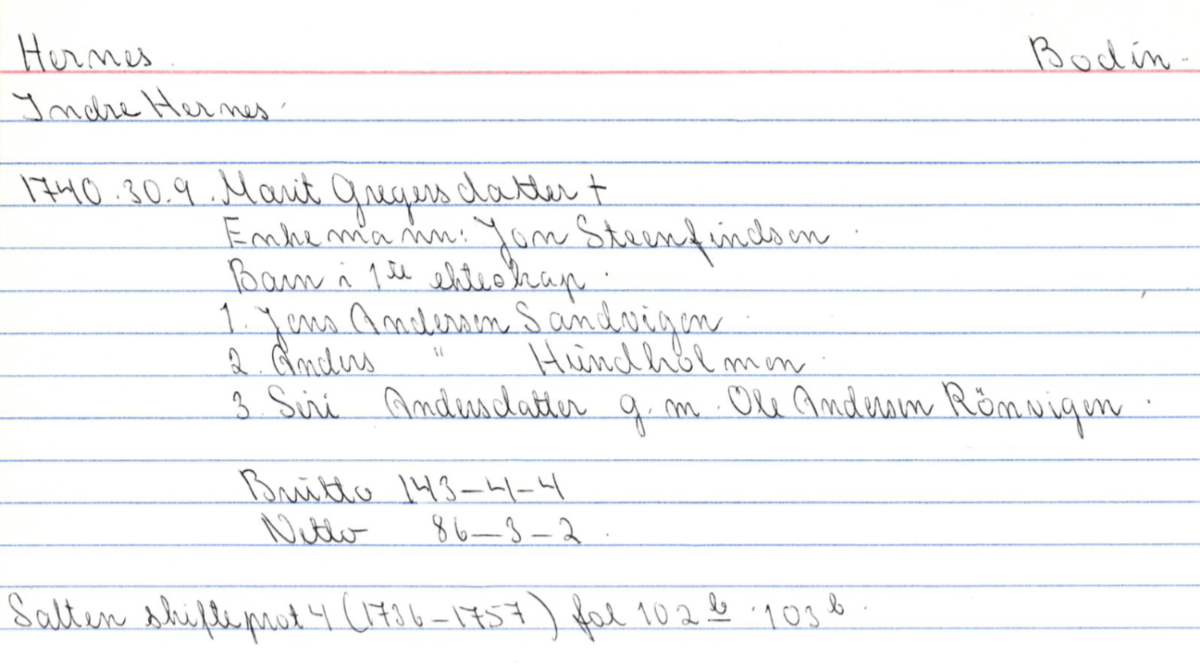 Hernes. Bodin-
Indre Hernes.
1740.30.9. Marit Gregersdatter +
Enkemann: Jon Steenfindsen.
Barn i 1ste ekteskap.
1. Jens Andersen Sandvigen.
2. Anders " Hundholmen.
3. Siri Andersdatter g.m. Ole Andersen Rönvigen.
Brutto 143-4-4
Netto 86-3-2.
Salten skifteprot 4 (1736-1757) fol 102b.103b.